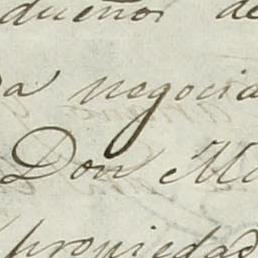 dueños de
da negocia
Don Ma
propiedad